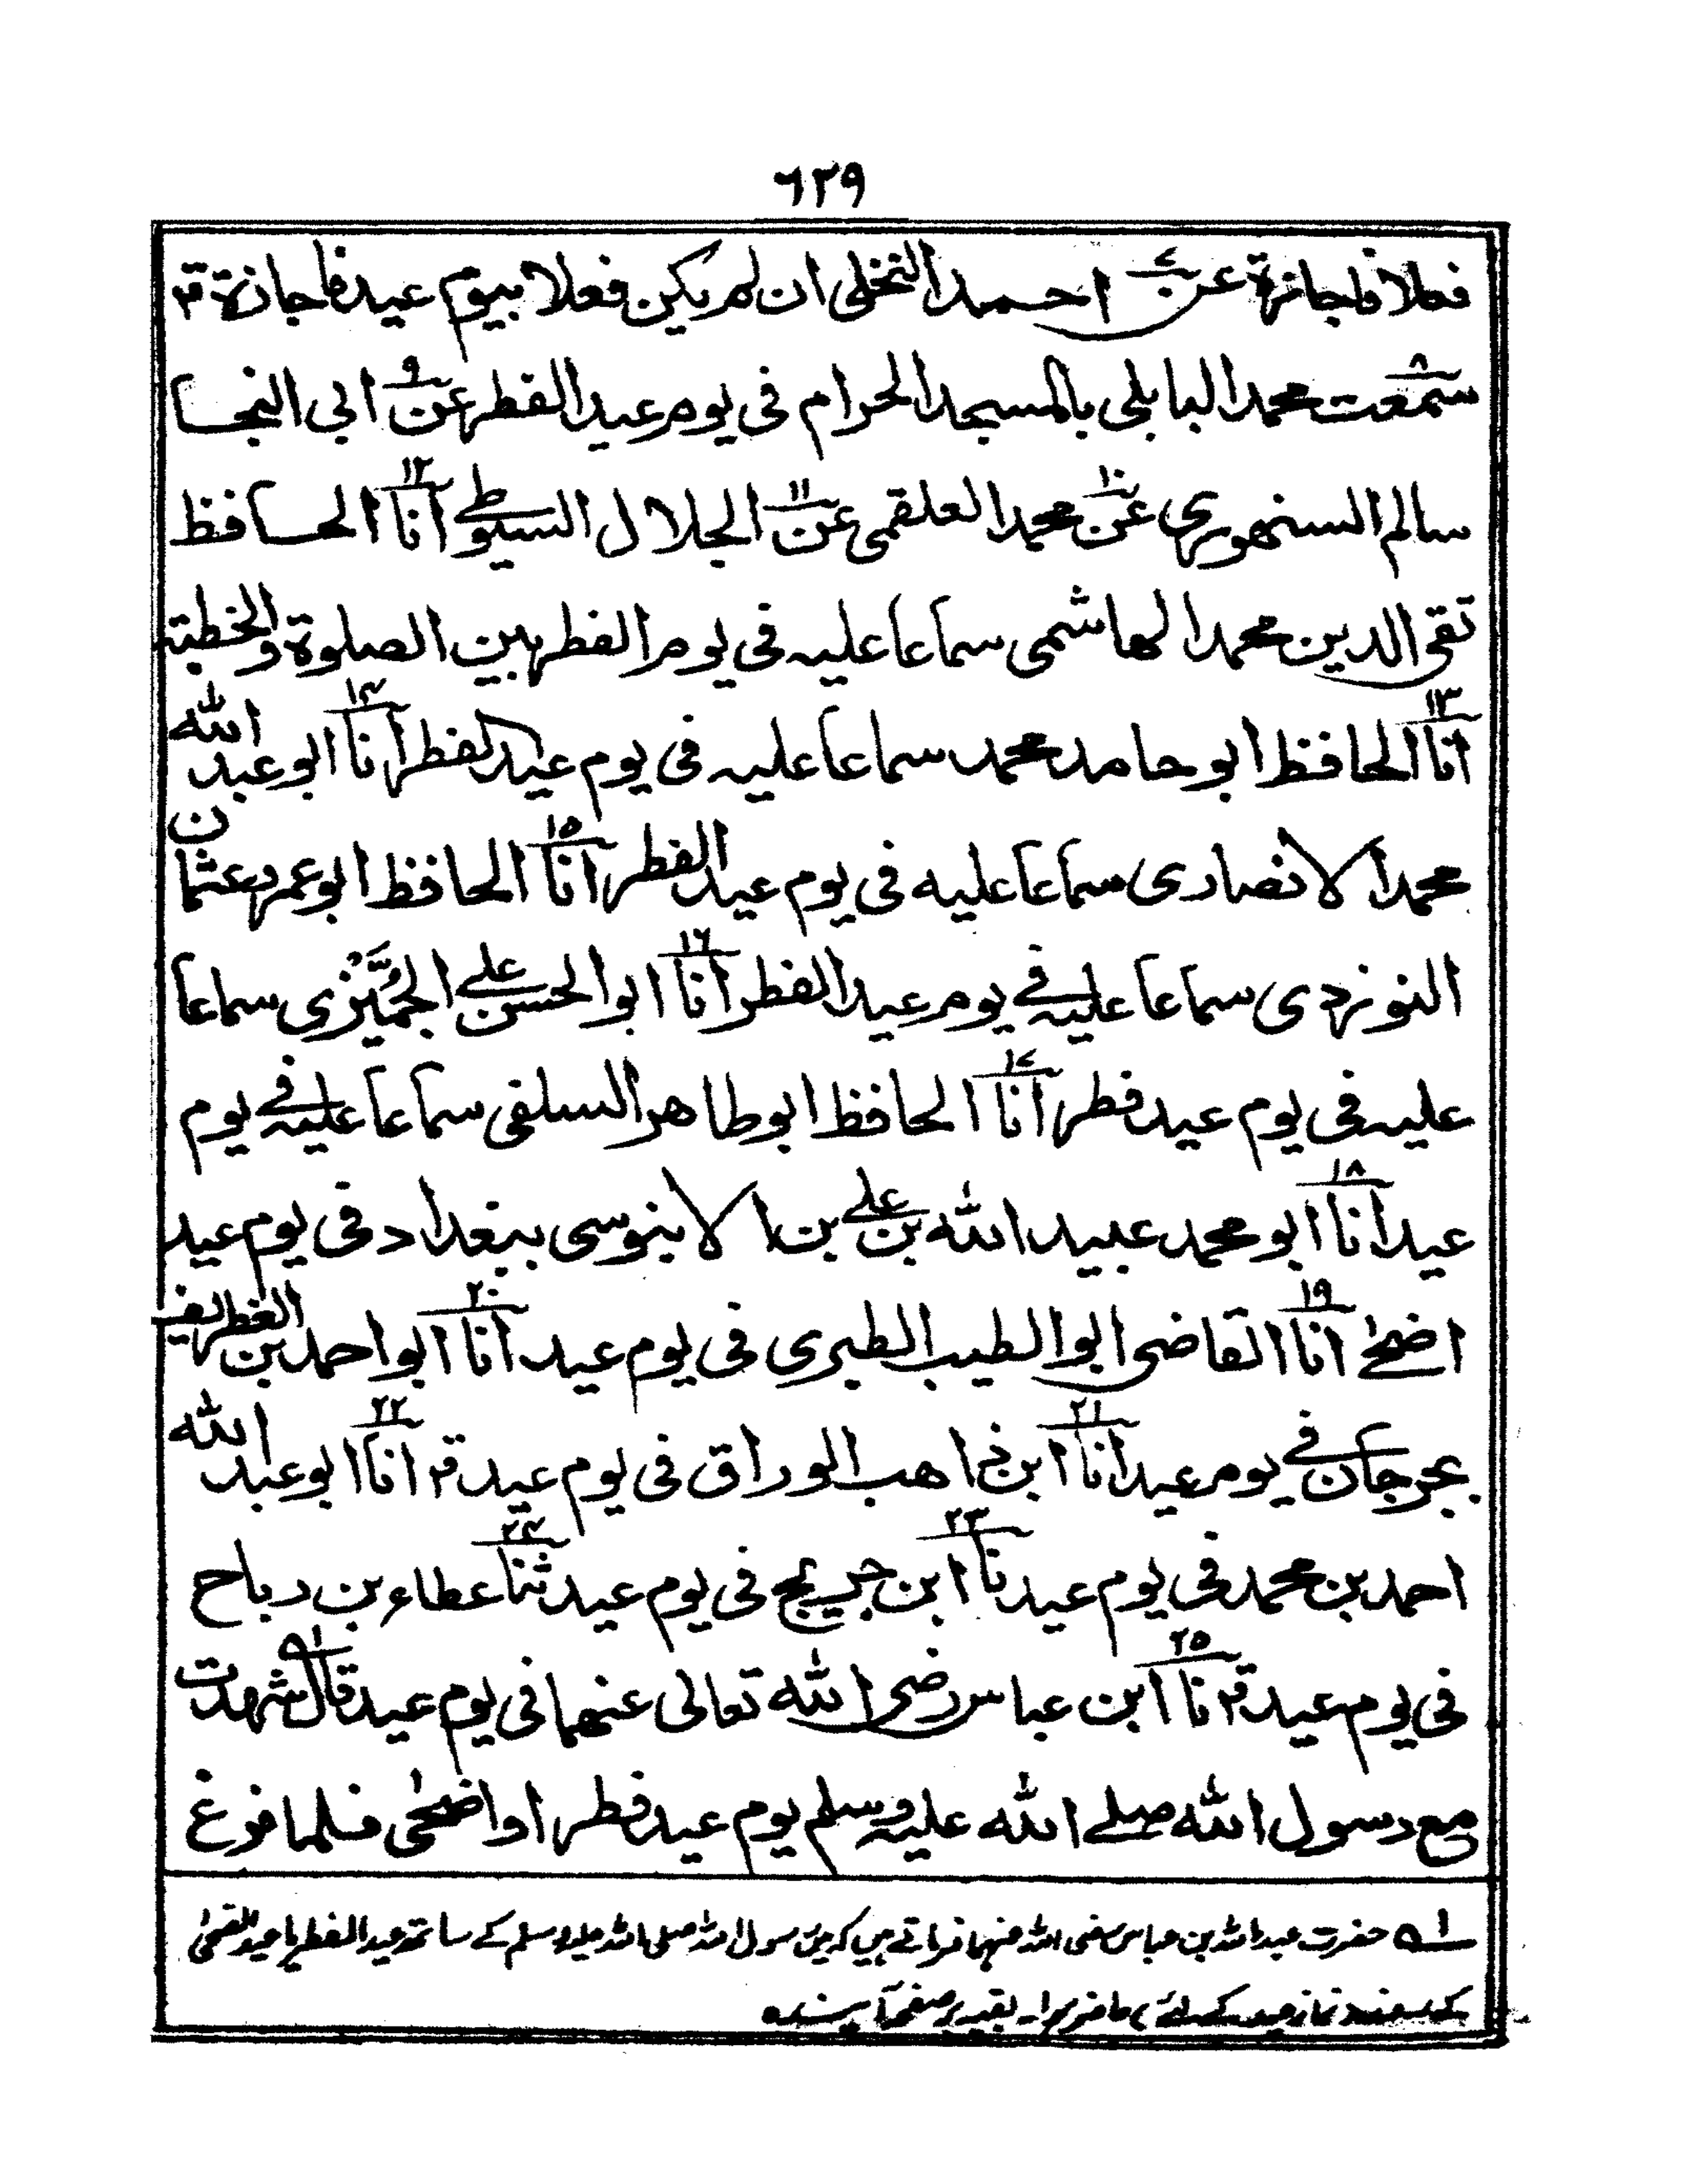 ٦٣٩
فعلا فاجازة عن ٧ احمد النخلى ان لم يكن فعلا بيوم عيد فاجازة قر
سمعت ٨ محمد البابلى بالمسجد الحرام فى يوم عيد الفطر عن ٩ ابى النجا
سالم السنهورى عن ١٠ محمد العلقمى عن ١١ الجلال السيوطى انا ١٢ الحافظ
تقى الدين محمد الهاشمى سماعا عليه فى يوم الفطر بين الصلوة والخطبة
انا ١٣ الحافظ ابو حامد محمد سماعا عليه فى يوم عيد الفطر انا ١٤ ابو عبد الله
محمد الانصارى سماعا عليه فى يوم عيد الفطر انا ١٥ الحافظ ابو عمرو عثمان
النوزدى سماعا عليه فى يوم عيد الفطر انا ١٦ ابو الحسن على الجُمَّيْزى سماعا
عليه فى يوم عيد فطر انا ١٧ الحافظ ابو طاهر السلفى سماعا عليه فى يوم
عيد انا ١٨ ابو محمد عبيد الله بن على بن الابنوسى ببغداد فى يوم عيد
اضحى انا ١٩ القاضى ابو الطيب الطبرى فى يوم عيد انا ٢٠ ابو احمد بن الغطريف
بجرجان فى يوم عيد انا ٢١ ابن اهب الوراق فى يوم عيد قر انا ٢٢ ابو عبد الله
احمد بن محمد فى يوم عيد نا ٢٣ ابن جريج فى يوم عيد ثنا ٢٤ عطاء بن رباح
فى يوم عيد قر نا ٢٥ ابن عباس رضى الله تعالى عنهما فى يوم عيد قال ٩١ شهدت
مع رسول الله صلے الله عليه وسلم يوم عيد فطر او اضحى فلما فرغ
٩١ حضرت عبداللہ بن عباس رضی اللہ عنہما فرماتے ہیں کہ میں رسول اللہ صلی اللہ علیہ وسلم کے ساتھ عیدالفطر یا عیدالاضحیٰ
نماز عید کے لئے حاضر ہوا۔ بقیہ بر صفحہ آیندہ